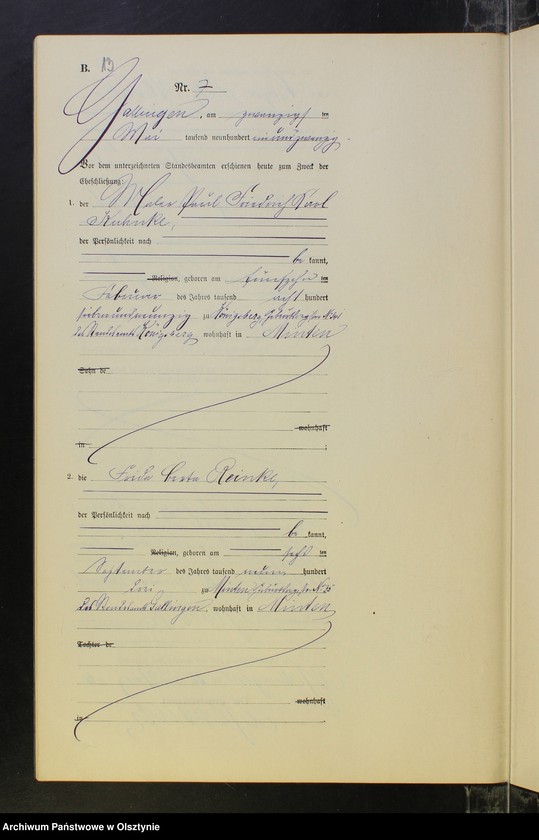 B. 13
Nr. 7
Gallingen, am zwanzigsten
Mai tausend neunhundert neunundzwanzig.
Vor dem unterzeichneten Standesbeamten erschienen heute zum Zweck der
Eheschließung:
1. der Maler Paul Friedrich Karl
Kuhnke,
der Persönlichkeit nach
be kannt,
Religion, geboren am fünfzehnten
Februar des Jahres tausend acht hundert
siebenundneunzig zu Königsberg, Geburtsregister Nr.
des Standesamts Königsberg wohnhaft in Minten
Sohn de
wohnhaft
in
2. die Frida Berta Reinke,
der Persönlichkeit nach
be kannt,
Religion, geboren am ten
September des Jahres tausend neun hundert
drei, zu Minten, Geburtsregister Nr. 35
des Standesamts Gallingen, wohnhaft in Minten
Tochter de
wohnhaft
in
Archiwum Państwowe w Olsztynie